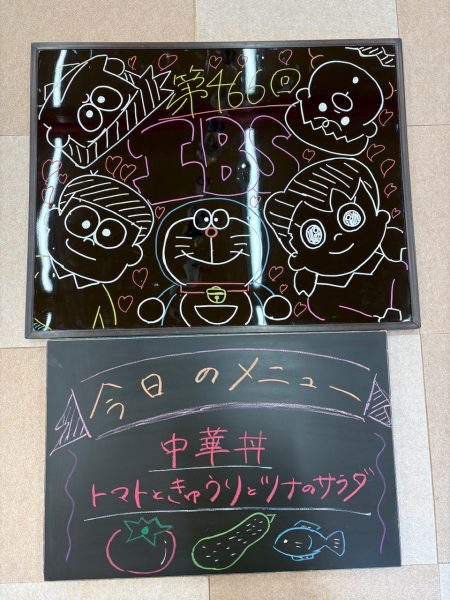 第466回
IBS
今日のメニュー
中華丼
トマトときゅうりとツナのサラダ